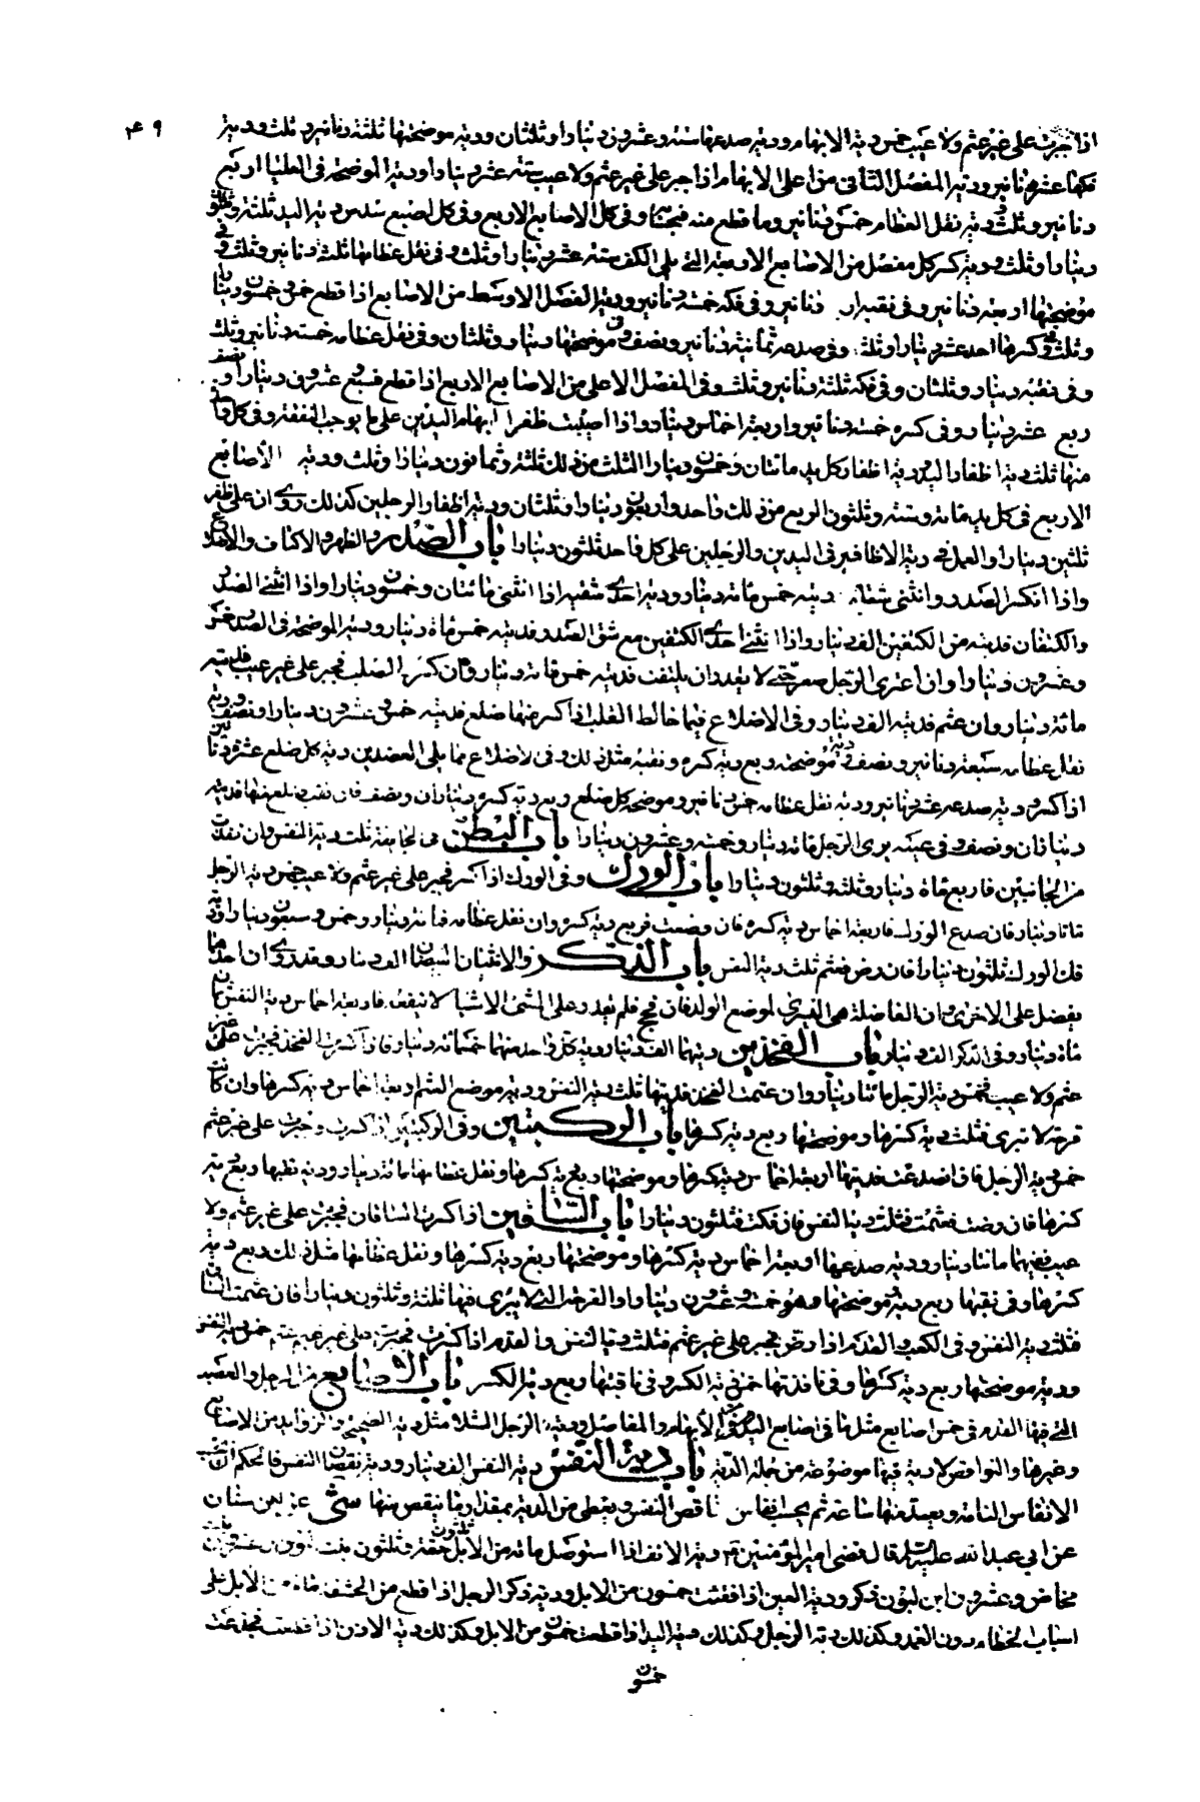 ٤٩
اذا جبرت على غير عثم ولا عيب خمس دية الابهام ودية صدعها ستة وعشرون دينارا وثلثان ودية موضحتها ثلثة دنانير وثلث ودية
فكها عشرة دنانير ودية المفصل الثاني من اعلى الابهام اذا جبر على غير عثم ولا عيب ستة عشر دينارا ودية الموضحة في العليا اربع
دنانير وثلث ودية نقل العظام خمس دنانير وما قطع منه فبحسابه وفي كل الاصابع الاربع وفي كل اصبع سدس دية اليد ثلثة وثمانون
دينارا وثلث ودية كسر كل مفصل من الاصابع الاربعة التي يلي الكف ستة عشر دينارا وثلث وفي نقل عظامها ثلثة دنانير وثلث وفي
موضحتها اربعة دنانير وفي نقبه اربعة دنانير وفي فكه خمسة دنانير ودية المفصل الاوسط من الاصابع اذا قطع خمس وخمسون دينارا
وثلث وفي كسرها احد عشر دينارا وثلث وفي صدعه ثمانية دنانير ونصف وفي موضحتها دينار وثلثان وفي نقل عظامه خمسة دنانير وثلث
وفي نقبه دينار وثلثان وفي فكه ثلثة دنانير وثلث وفي المفصل الاعلى من الاصابع الاربع اذا قطع سبع وعشرون دينارا ونصف
ربع عشر دينار وفي كسره خمسة دنانير واربعة اخماس دينار واذا اصيبت ظفرا ابهام اليدين على ما يوجب النفقة وفي كل واحد
منها ثلث دية اظفار اليد ودية اظفار كل يد مائتان وخمسون دينارا الثلث من ذلك ثلثة وثمانون دينارا وثلث ودية الأصابع
الاربع في كل يد مائة وستة وثلثون الربع من ذلك واحد واربعون دينارا وثلثان ودية اظفار الرجلين كذلك روى ان على كل ظفر
ثلثين دينارا والعمل في دية الاظافير في اليدين والرجلين على كل واحد ثلثون دينارا باب الصدر والظهر والاكتاف والاضلاع
واذا انكسر الصدر وانثنى شقاه ديته خمس مائة دينار ودية احدى شقيه اذا انثنى مائتان وخمسون دينارا واذا انثنى الصدر
والكتفان فديته من الكتفين الف دينار واذا انثنى احدى الكتفين مع شق الصدر فديته خمس مائة دينار ودية الموضحة في الصدر خمس
وعشرون دينارا وان اعترى الرجل صعر حتى لا يقدر ان يلتفت فديته خمس مائة دينار وان كسر الصلب فجبر على غير عيب فديته
مائة دينار وان عثم فديته الف دينار وفي الاضلاع فيما خالط القلب اذا كسر منها ضلع فديته خمس وعشرون دينارا ونصف ودية
نقل عظامه سبعة دنانير ونصف وموضحته ربع دية كسره ونقبه مثل ذلك وفي الاضلاع مما يلي العضدين دية كل ضلع عشرة دنانير
اذا كسر ودية صدعه عشر دنانير ودية نقل عظامه خمس دنانير وموضحة كل ضلع ربع دية كسره ديناران ونصف فان نقب ضلع منها فديته
ديناران ونصف وفي عيبه برئ الرجل مائة دينار وخمسة وعشرون دينارا باب البطن في الجائفة ثلث دية النفس وان نفذت
من الجانبين فاربع مائة دينار وثلثة وثلثون دينارا باب الورك وفي الورك اذا كسر فجبر على غير عثم ولا عيب خمس دية الرجل
مائتا دينار فان صدع الورك فاربعة اخماس دية كسره فان وضحت فربع دية كسره وان نقل عظامه فمائة دينار وخمس وسبعون دينارا ودية
فك الورك ثلثون دينارا فان رض فعثم ثلث دية النفس باب الذكر والانثيان البيضتان الف دينار وقد روى ان احدهما
يفضل على الاخرى وان الفاضلة هي اليسرى لموضع الولد فان فحج فلم يقدر على المشي الا شيئا لا ينفعه فاربعة اخماس دية النفس ثمان
مائة دينار وفي الذكر الف دينار باب الفخذين ديتهما الف دينار ودية كل واحد منهما خمسمائة دينار فاذا كسرت الفخذ فجبرت على غير
عثم ولا عيب فخمس دية الرجل مائتا دينار وان عثمت الفخذ فديتها ثلث دية النفس ودية موضع العثم اربعة اخماس دية كسرها وان كانت
قرحة لا تبرى فثلث دية كسرها وموضحتها ربع دية كسرها باب الركبتين وفي الركبتين اذا كسرت وجبرت على غير عثم
خمس دية الرجل فان انصدعت فديتها اربعة اخماس دية كسرها وموضحتها ربع دية كسرها ونقل عظامها مائة دينار ودية نقبها ربع دية
كسرها فان رضت فعثمت فثلث دية النفس فان فكت فثلثون دينارا باب الساقين اذا كسرت الساقان فجبرت على غير عثم ولا
عيب ففيهما مائتا دينار ودية صدعها اربعة اخماس دية كسرها وموضحتها ربع دية كسرها ونقل عظامها مثل ذلك ربع دية
كسرها وفي نقبها ربع دية موضحتها وهو خمسة وعشرون دينارا والقرحة التي لا تبرى فيها ثلثة وثلثون دينارا فان عثمت الساق
فثلث دية النفس وفي الكعب والقدم اذا رض فجبر على غير عثم فثلث دية النفس والقدم اذا كسرت فجبرت على غير عثم خمس دية النفس
ودية موضحتها ربع دية كسرها وفي نافذتها خمس دية الكسر وفي ناقبتها ربع دية الكسر باب الاصابع من الرجل والعصب
التي فيها القدم في خمس اصابع مثل ما في اصابع اليد الابهام والمفاصل ودية الرجل الشلاء مثل دية الصحيحة والزوايد من الاصابع
وغيرها والنواقص لا دية فيها موضوعة من جملة الدية باب دية النفس دية النفس الف دينار ودية نقصان النفس فالحكم ان يحسب
الانفاس التامة ويعد منها ساعة ثم يحسب انفاس ناقص النفس ويعطى من الدية بمقدار ما ينقص منها شئ عن سنان
عن ابي عبد الله عليه السلم قال قضى امير المؤمنين ع دية الانف اذا استوصل مائة من الابل ثلثون حقة وثلثون بنت لبون وعشرون بنت
مخاض وعشرون ابن لبون ذكر ودية العين اذا فقئت خمسون من الابل ودية ذكر الرجل اذا قطع من الحشفة مائة من الابل على
اسباب الخطاء دون العمد وكذلك دية الرجل وكذلك دية اليد اذا قطعت خمسون من الابل وكذلك دية الاذن اذا قطعت فجدعت
خمسون